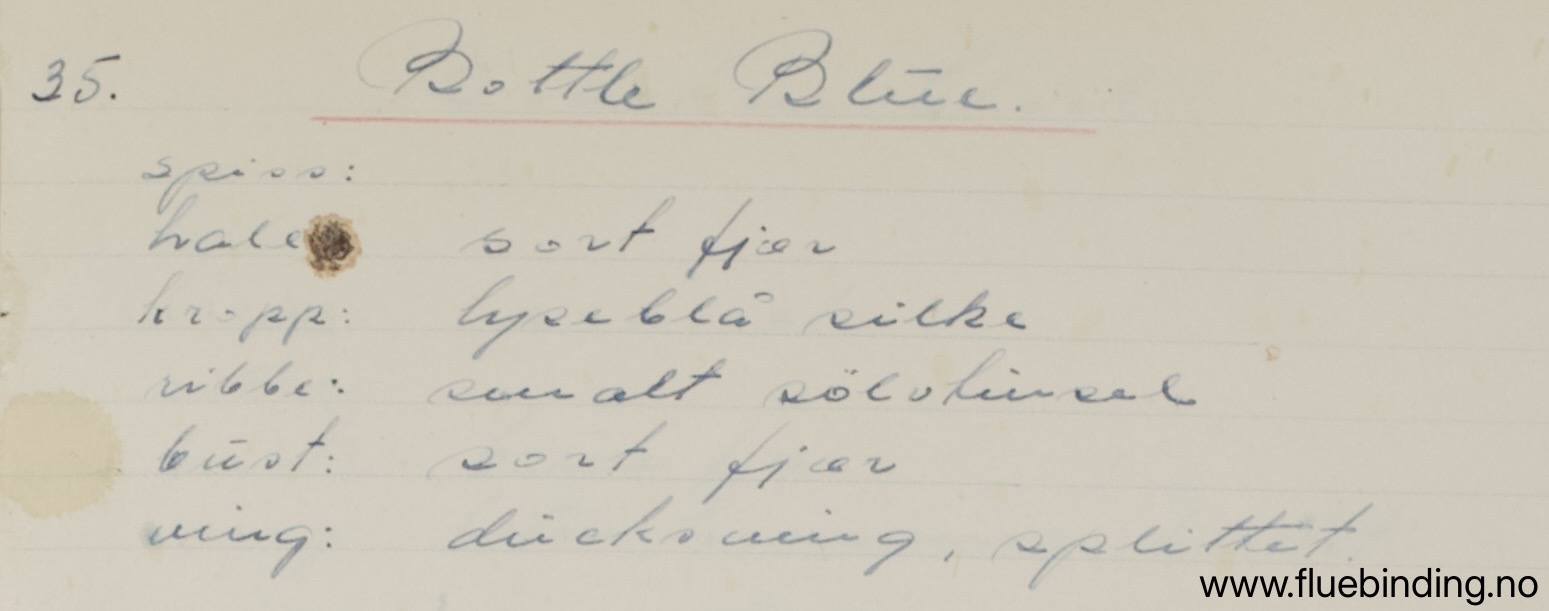 35. Bottle Blūe.
spiss:
hale sort fjær
kropp: lyseblå silke
ribbe: smalt sölvtinsel
būst: sort fjær
ving: dūcksving, splittet.
www.fluebinding.no